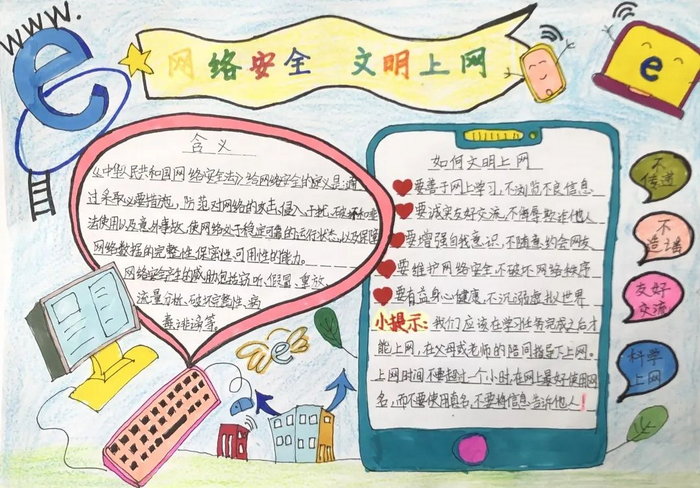 www.
e
网络安全 文明上网
e
含义
《中华人民共和国网络安全法》给网络安全的定义是:通
过采取必要措施,防范对网络的攻击、侵入、干扰、破坏和
法使用以及意外事故,使网络处于稳定可靠的运行状态,以及保障
网络数据的完整性、保密性、可用性的能力。
网络安全产生的威胁包括窃听、假冒、重放、
流量分析、破坏完整性、病
毒、诽谤等。
如何文明上网
要善于网上学习,不浏览不良信息
要诚实友好交流,不侮辱欺诈他人
要增强自我意识,不随意约会网友
要维护网络安全,不破坏网络秩序
要有益身心健康,不沉溺虚拟世界
小提示:我们应该在学习任务完成之后才
能上网,在父母或老师的陪同指导下上网。
上网时间不要超过一个小时,在网上最好使用网
名,而不要使用真名,不要将信息告诉他人!
不
传递
不
造谣
友好
交流
科学
上网
e